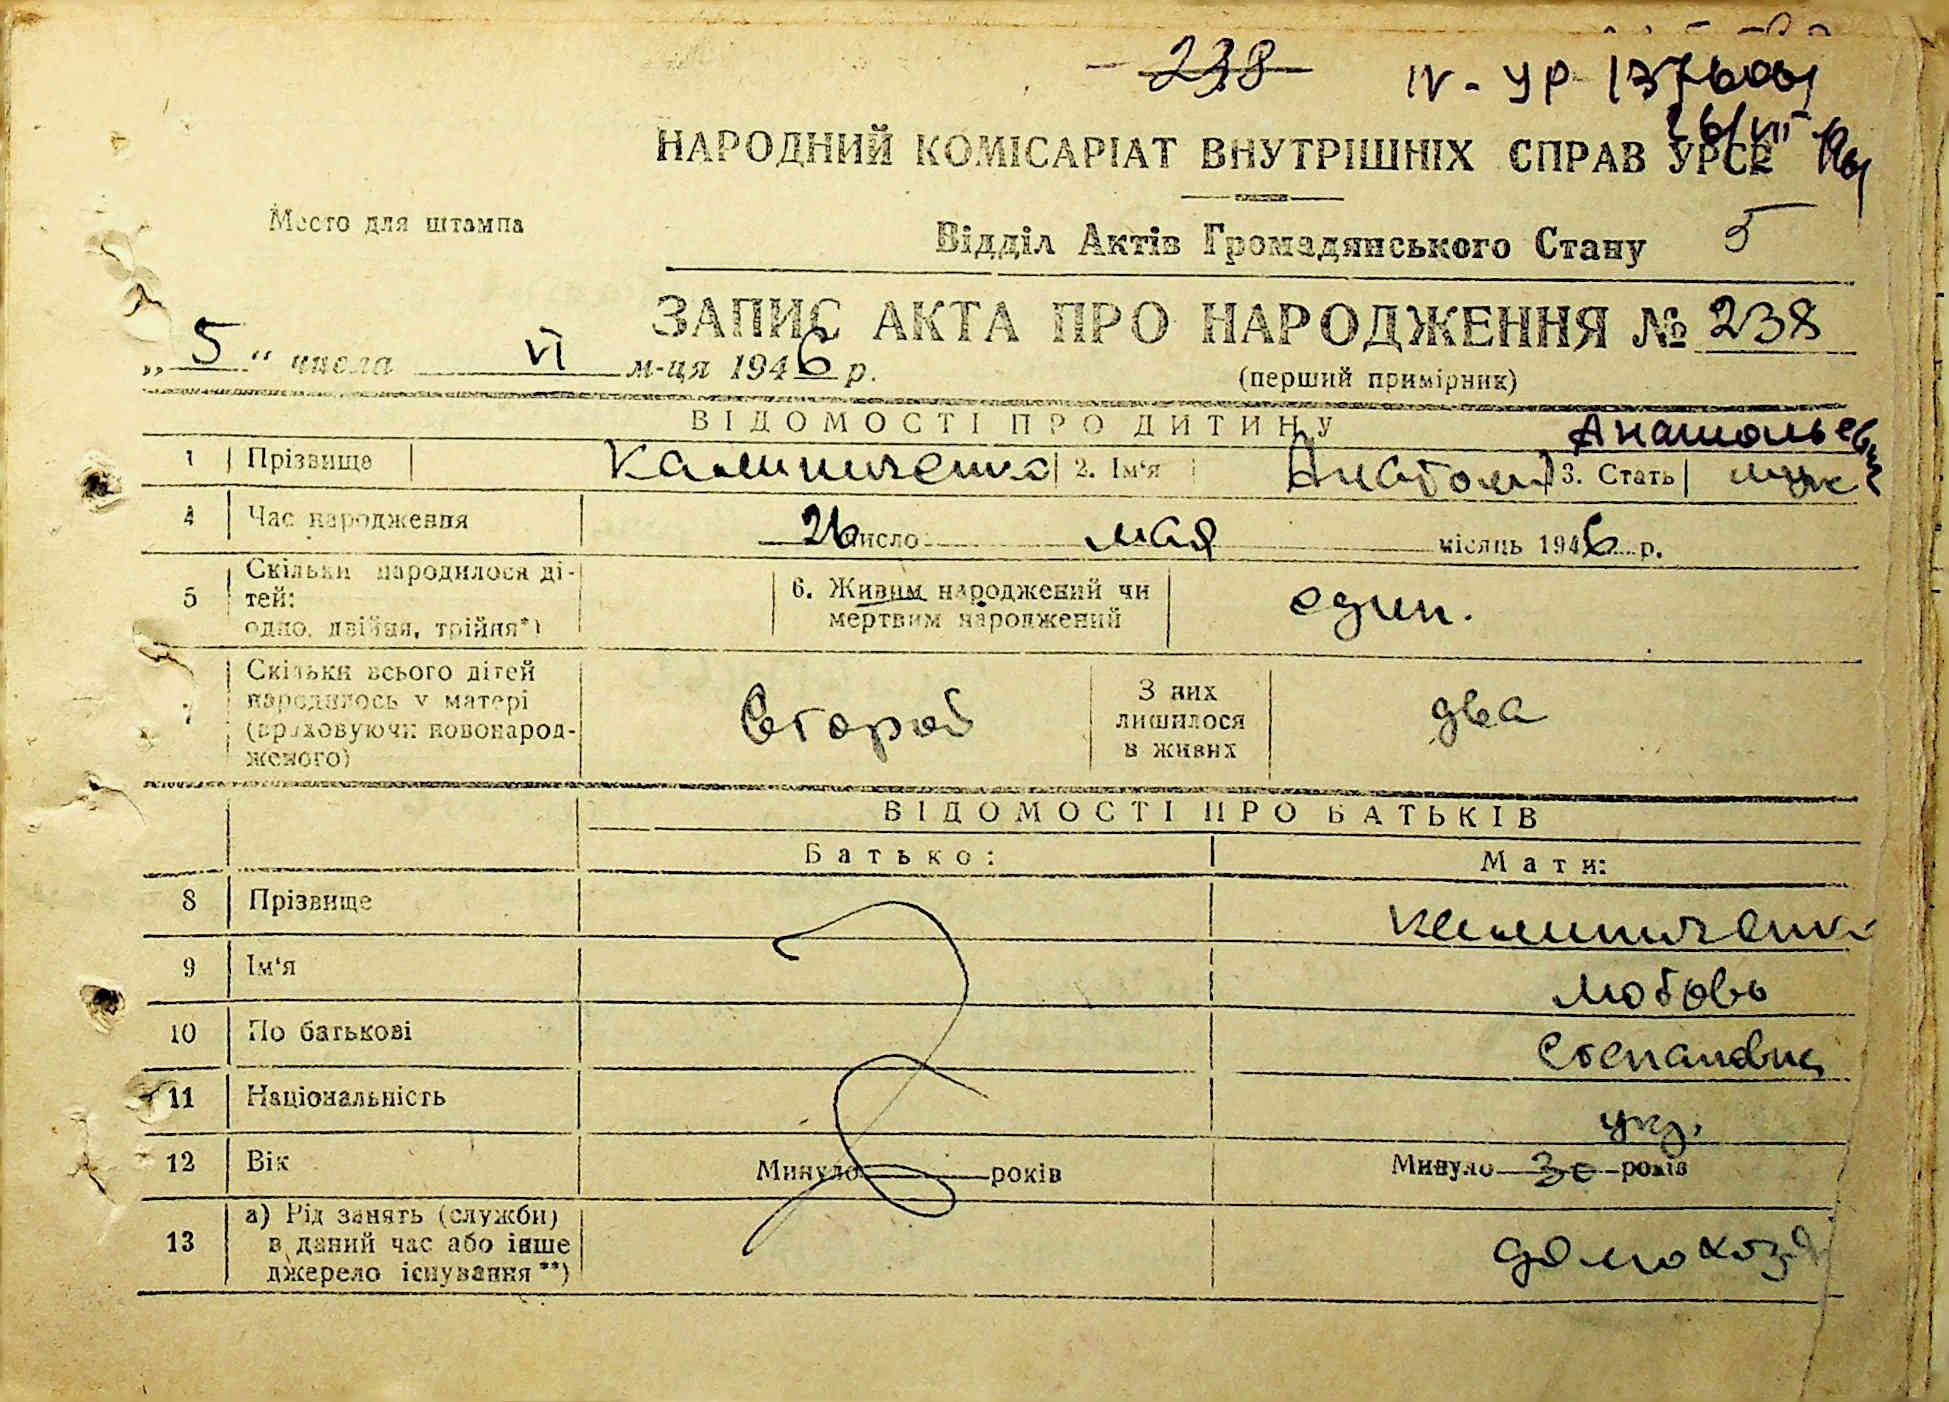 238 IV - УР 137600
26/VII
НАРОДНИЙ КОМІСАРІАТ ВНУТРІШНІХ СПРАВ УРСР
Место для штампа
Відділ Актів Громадянського Стану 5
ЗАПИС АКТА ПРО НАРОДЖЕННЯ № 238
„ 5 “ числа VI м-ця 1946 р.
(перший примірник)
ВІДОМОСТІ ПРО ДИТИНУ
Анатольевич
1 Прізвище Калиниченко 2. Ім'я Анатолий 3. Стать муж
4 Час народження 26 число мая місяць 1946 р.
5 Скільки народилося ді-
тей:
одно, двійня, трійня*)
6. Живим народжений чи
мертвим народжений
един.
7 Скільки всього дітей
народилось у матері
(враховуючи новонарод-
женого)
Второй
З них
лишилося
в живих
два
ВІДОМОСТІ ПРО БАТЬКІВ
Батько: Мати:
8 Прізвище Калиниченко
9 Ім'я Любовь
10 По батькові Степановна
11 Національність укр.
12 Вік Минуло років Минуло 30 років
13 а) Рід занять (служби)
в даний час або інше
джерело існування**)
домохоз